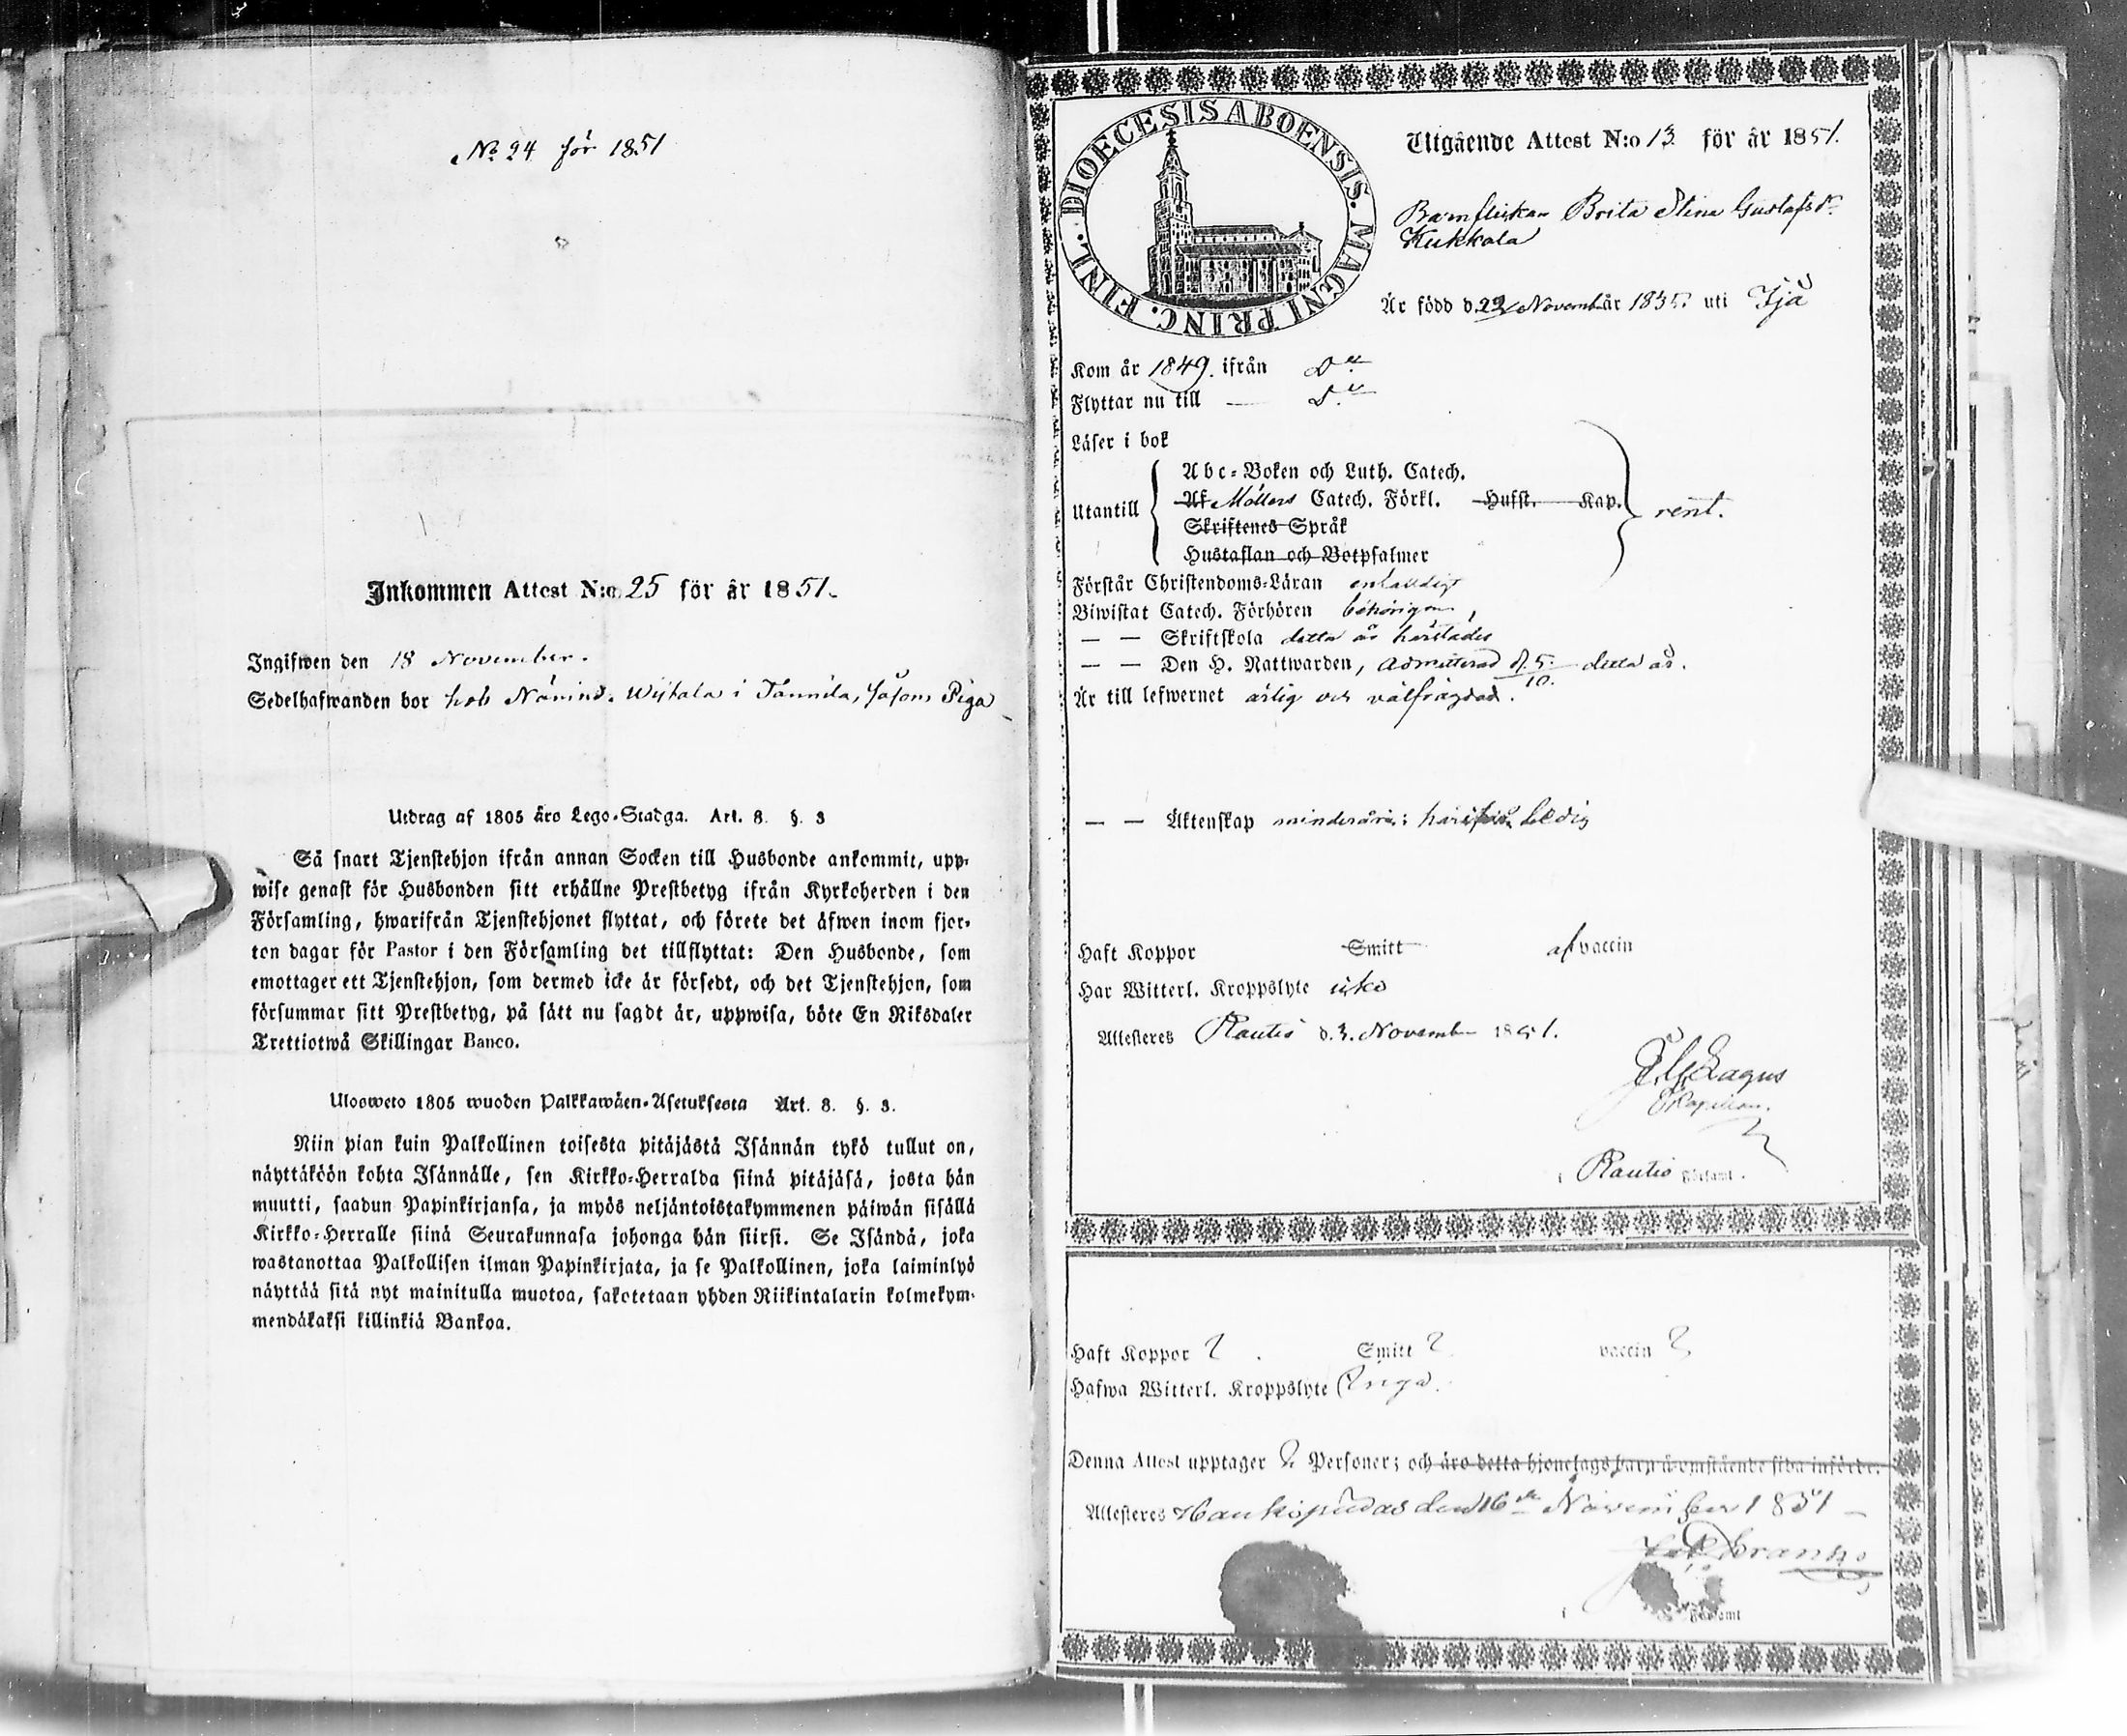 No 24 för 1851
Inkommen Attest N:o 25 för år 1851.
Ingifwen den 18 November.
Sedelhafwanden bor hos i Tannila, såsom Piga
Utdrag af 1805 års Lego-Stadga. Art. 8. §. 3
Så snart Tjenstehjon ifrån annan Socken till Husbonde ankommit, upp-
wise genast för Husbonden sitt erhållne Prestbetyg ifrån Kyrkoherden i den
Församling, hwarifrån Tjenstehjonet flyttat, och förete det äfwen inom fjor-
ton dagar för Pastor i den Församling det tillflyttat: Den Husbonde, som
emottager ett Tjenstehjon, som dermed icke är försedt, och det Tjenstehjon, som
försummar sitt Prestbetyg, på sätt nu sagdt är, uppwisa, böte En Riksdaler
Trettiotwå Skillingar Banco.
Uloswето 1805 wuoden Palkkawäen-Asetuksesta Art. 8. §. 3.
Niin pian kuin Palkollinen toisesta pitäjästä Isännän tykö tullut on,
näyttäköön kohta Isännälle, sen Kirkko-Herralda siinä pitäjäsä, josta hän
muutti, saadun Papinkirjansa, ja myös neljäntoistakymmenen päiwän sisällä
Kirkko-Herralle siinä Seurakunnasa johonga hän siirsi. Se Isändä, joka
wastanottaa Palkollisen ilman Papinkirjata, ja se Palkollinen, joka laiminlyö
näyttää sitä nyt mainitulla muotoa, sakotetaan yhden Riikintalarin kolmekym-
mendäkaksi killinkiä Bankoa.
DIOECESIS ABOENSIS. MAGNI PRINC. FINL.
Utgående Attest N:o 13 för år 1851.
Barnflickan Brita Stina Gustafsdr
Kukkola
Är född d. 22 Novemb. år 1835. uti Ijå
Kom år 1849. ifrån Do
Flyttar nu till — Do
Läser i bok
Abc-Boken och Luth. Catech.
Utantill Af Möllers Catech. Förkl. Hufst. Kap. rent.
Skriftenes Språk
Hustaflan och Botpsalmer
Förstår Christendoms-Läran enfaldigt
Biwistat Catech. Förhören behörigen,
— — Skriftskola detta år härstädes
— — Den H. Nattwarden, admitterad d. 5/10 detta år.
Är till lefwernet ärlig och välfrägdad.
— — Äktenskap minderårig: härifrån ledig
Haft Koppor Smitt af vaccin
Har Witterl. Kroppslyte icke
Attesteres Rautio d. 3. November 1851.
Lagus
Kapellan.
i Rautio Församl.
Haft Koppor 2 Smitt 2 vaccin 2
Hafwa Witterl. Kroppslyte Inga.
Denna Attest upptager 2 Personer; och äro detta hjonelags barn å omstående sida införde.
Attesteres Haukipudas den 16de November 1851 —
i Församl